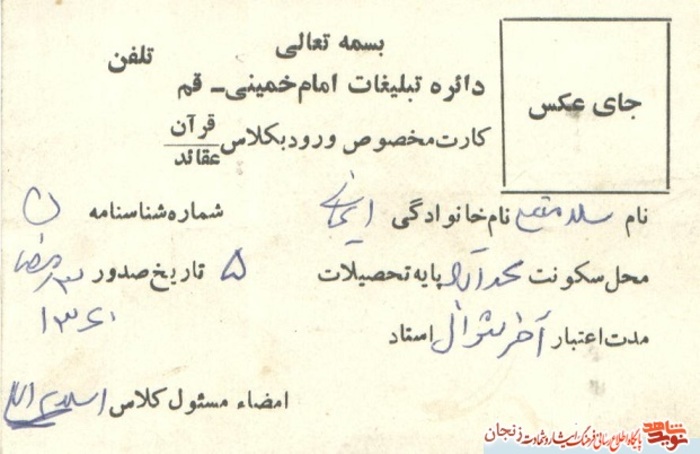 بسمه تعالی
تلفن
دائره تبلیغات امام خمینی - قم
جای عکس
کارت مخصوص ورود بکلاس قرآن
عقائد
نام سید نام خانوادگی شماره شناسنامه ۵
محل سکونت پایه تحصیلات ۵ تاریخ صدور
۱۳۶۰
مدت اعتبار آخر شوال استاد
امضاء مسئول کلاس
نوید شاهد پایگاه اطلاع رسانی فرهنگ ایثار و شهادت زنجان